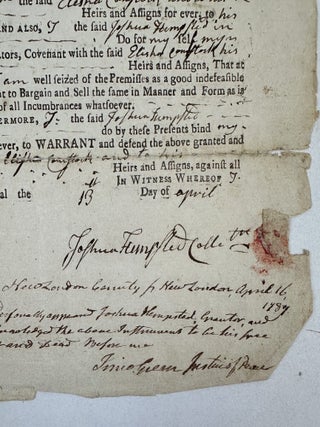 the said Elisha Comstock
Heirs and Assigns for ever, to his
AND ALSO, I the said Joshua Hempsted in
Do for my self my
ators, Covenant with the said Elisha Comstock his
Heirs and Assigns, That at
I am well seized of the Premisses as a good indefeasible
ht to Bargain and Sell the same in Manner and Form as is
of all Incumbrances whatsoever.
ERMORE, I the said Joshua Hempsted
do by these Presents bind my
ver, to WARRANT and defend the above granted and
Elisha Comstock and to his
Heirs and Assigns, against all
IN WITNESS WHEREOF I
al the 13 Day of April
Joshua Hempsted Colle
New London County ss New London, April 16,
Personally appeared Joshua Hempsted, Grantor, and
knowledged the above Instrument to be his free
Deed Before me
Timo Green Justice of Peace